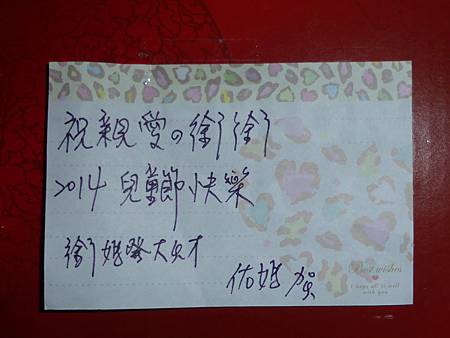 祝親愛の衛衛
2014 兒童節快樂
佑媽 賀
Best wishes
I hope all is well
with you